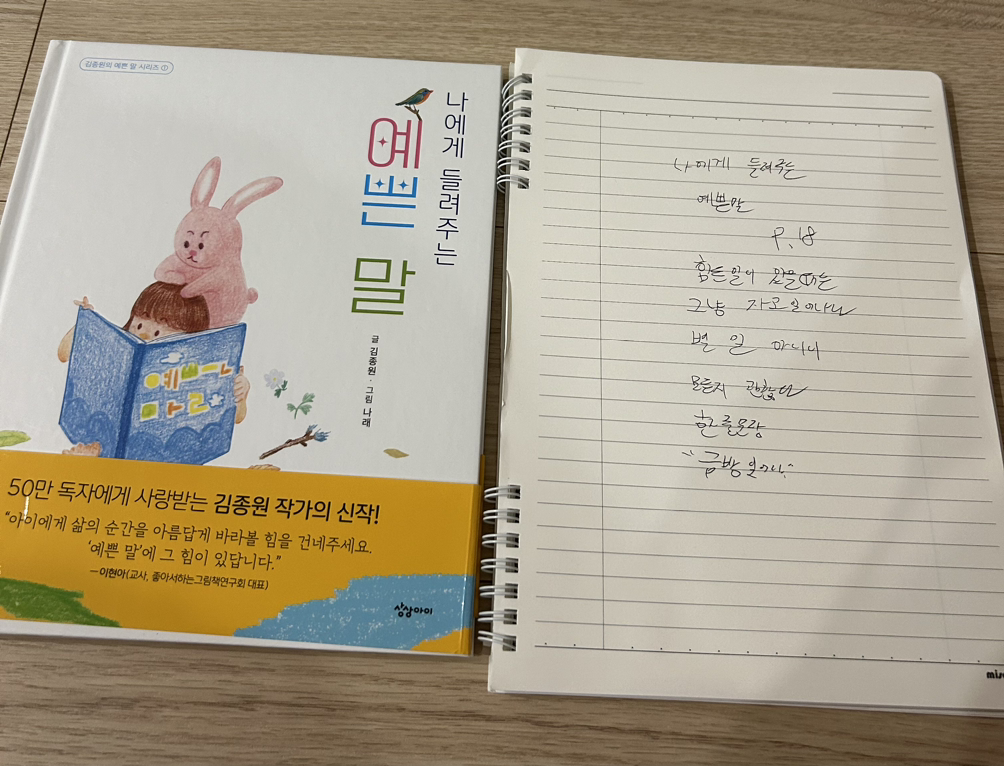 김종원의 예쁜 말 시리즈 ①
나에게 들려주는
예쁜 말
글 김종원 · 그림 나래
예쁘ㅏㄴ
마ㄹ
50만 독자에게 사랑받는 김종원 작가의 신작!
“아이에게 삶의 순간을 아름답게 바라볼 힘을 건네주세요.
‘예쁜 말’에 그 힘이 있답니다.”
—이현아(교사, 좋아서하는그림책연구회 대표)
상상아이
나에게 들려주는
예쁜말
P. 18
힘든일이 있을때는
그냥
별 일 아니니
모든지 괜찮다
한 줄
"금방